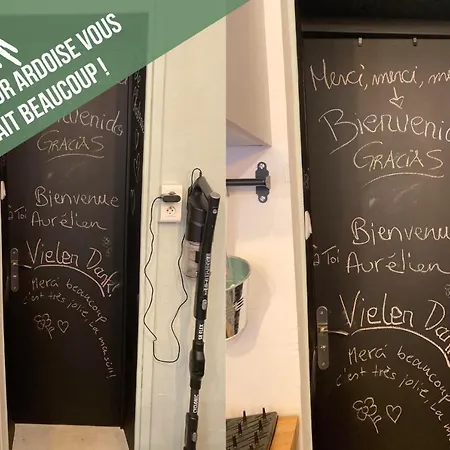 OR ARDOISE VOUS
AIT BEAUCOUP !
envenido
GRACIAS
Bienvenue
à Toi
Aurélien
Vielen Dank!
Merci beaucoup
c'est très jolie, La maison!
Merci, merci, me
Bienvenido
GRACIAS
Bienvenue
à Toi
Aurélien
Vielen Dank
Merci beaucoup
c'est très jolie, La m